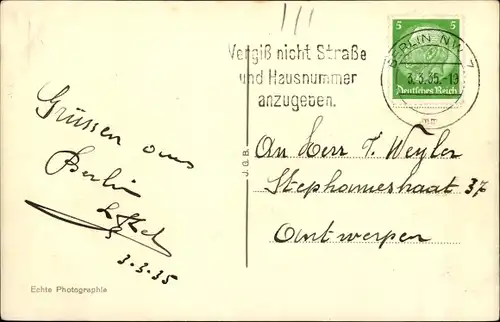 Vergiß nicht Straße
und Hausnummer
angugeben.
5 5
BERLIN NW 7
3.3.35.-19
mm
Deutsches Reich
Grüssen aus
Berlin
3.3.35
An Herr T. Weyler
Stephaniestraat 37
Antwerpen
J.d.B.
Echte Photographie